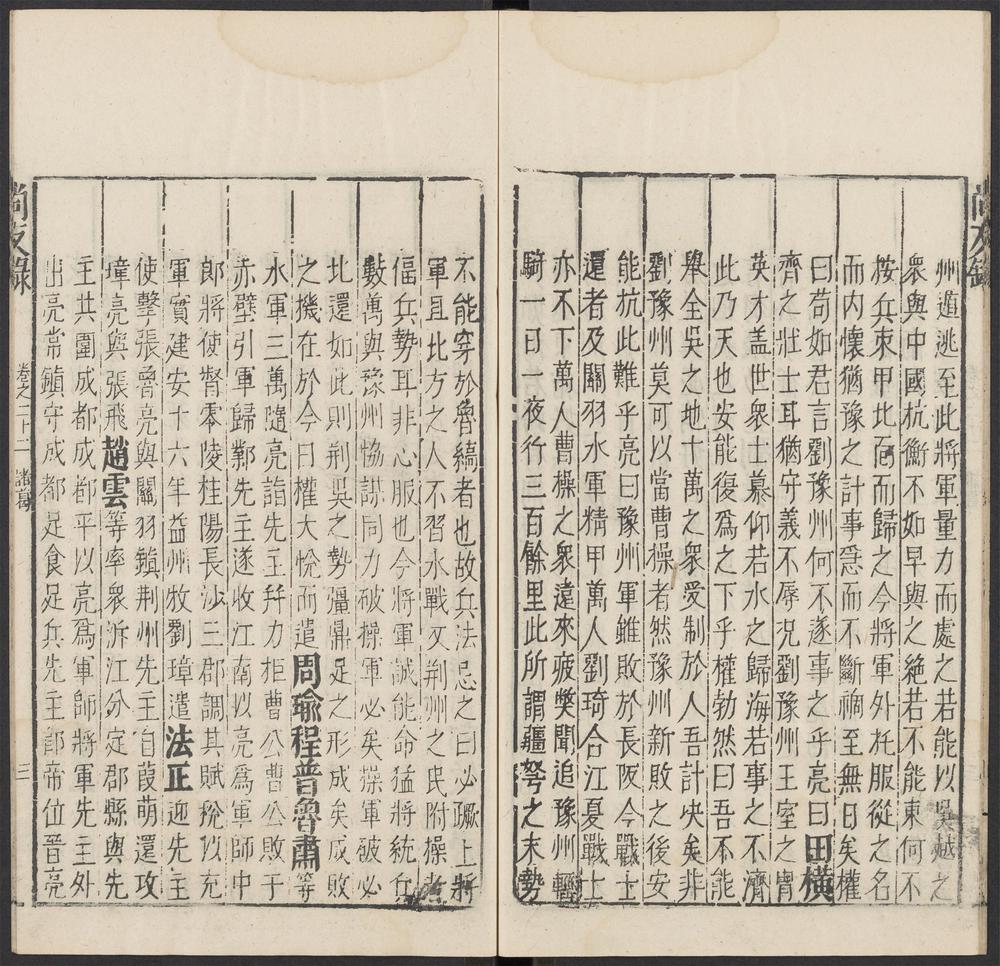 州遁逃至此將軍量力而處之若能以吳越之
衆與中國杭衡不如早與之絶若不能東何不
按兵束甲北面而歸之今將軍外托服從之名
而内懷猶豫之計事急而不斷禍至無日矣權
曰苟如君言劉豫州何不遂事之乎亮曰田橫
齊之壯士耳猶守義不辱况劉豫州王室之胄
英才盖世衆士慕仰若水之歸海若事之不濟
此乃天也安能復爲之下乎權勃然曰吾不能
舉全吳之地十萬之衆受制於人吾計决矣非
劉豫州莫可以當曹操者然豫州新敗之後安
能杭此難乎亮曰豫州軍雖敗於長阪今戰士
還者及關羽水軍精甲萬人劉琦合江夏戰士
亦不下萬人曹操之衆遠來疲獘聞追豫州輕
騎一日一夜行三百餘里此所謂彊弩之末勢
不能穿於魯縞者也故兵法忌之曰必蹶上將
軍且北方之人不習水戰又荆州之民附操者
偪兵勢耳非心服也今將軍誠能命猛將統兵
數萬與豫州恊謀同力破操軍必矣操軍破必
北還如此則荆吳之勢彊鼎足之形成矣成敗
之機在於今日權大悅而遣周瑜程普魯肅等
水軍三萬隨亮詣先主幷力拒曹公曹公敗于
赤壁引軍歸鄴先主遂收江南以亮爲軍師中
郎將使督零陵桂陽長沙三郡調其賦稅以充
軍實建安十六年益州牧劉璋遣法正迎先主
使擊張魯亮與關羽鎮荆州先主自葭萌還攻
璋亮與張飛趙雲等率衆泝江分定郡縣與先
主共圍成都成都平以亮爲軍師將軍先主外
出亮常鎮守成都足食足兵先主卽帝位晉亮
尚友錄
卷之二十二 諸葛
三